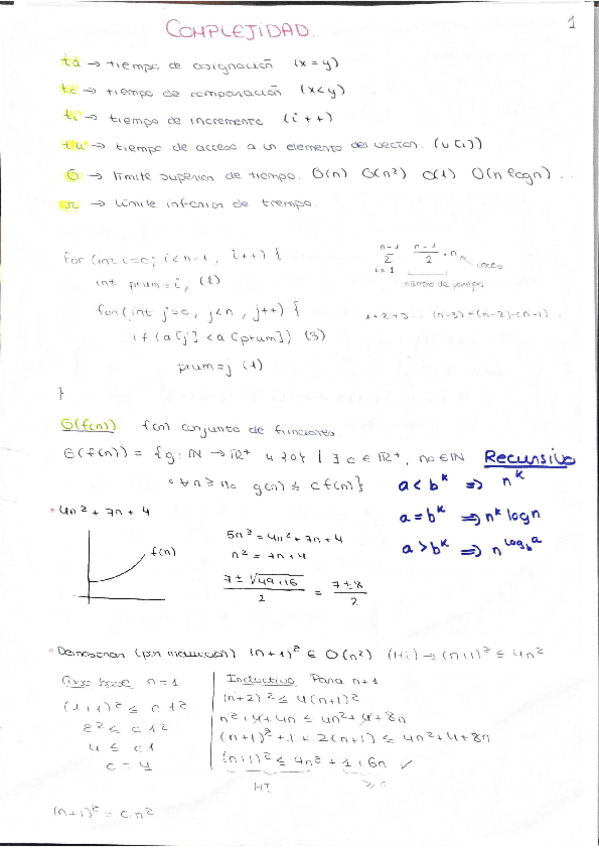 COMPLEJIDAD.
1
ta → tiempo de asignación (x = y)
tc → tiempo de comparación (x < y)
ti → tiempo de incremento (i++)
tv → tiempo de acceso a un elemento del vector. (v[i])
O → límite superior de tiempo. O(n) O(n²) O(1) O(n log n) ...
Ω → límite inferior de tiempo.
for (int i=0; i<n-1, i++) {
int prum = i, (1)
for (int j=0, j<n, j++) {
if (a[j] < a[prum]) (3)
prum = j (1)
}
n-1 Σ i=1
n-1 / 2 · n
veces
número de parejas
1+2+3... (n-3)+(n-2)+(n-1)
O(f(n)) f(n) conjunto de funciones.
O(f(n)) = {g: ℕ → ℝ⁺ ∪ {0} | ∃ c ∈ ℝ⁺, n₀ ∈ ℕ
∀n ≥ n₀ g(n) ≤ c f(n)}
Recursivo
a < b^k ⇒ n^k
a = b^k ⇒ n^k log n
a > b^k ⇒ n^(log_b a)
• 4n² + 7n + 4
f(n)
5n² = 4n² + 7n + 4
n² = 7n + 4
7 ± √49+16 / 2 = 7 ± 8 / 2
• Demostrar (por inducción) (n+1)² ∈ O(n²) (Hi) → (n+1)² ≤ 4n²
Caso base n=1
(1+1)² ≤ c 1²
2² ≤ c 1²
4 ≤ c 1
c = 4
Inductivo Para n+1
(n+2)² ≤ 4(n+1)²
n² + 4 + 4n ≤ 4n² + 4 + 8n
(n+1)² + 1 + 2(n+1) ≤ 4n² + 4 + 8n
(n+1)² ≤ 4n² + 1 + 6n ✓
HI
≥ 0
(n+1)² = c n²